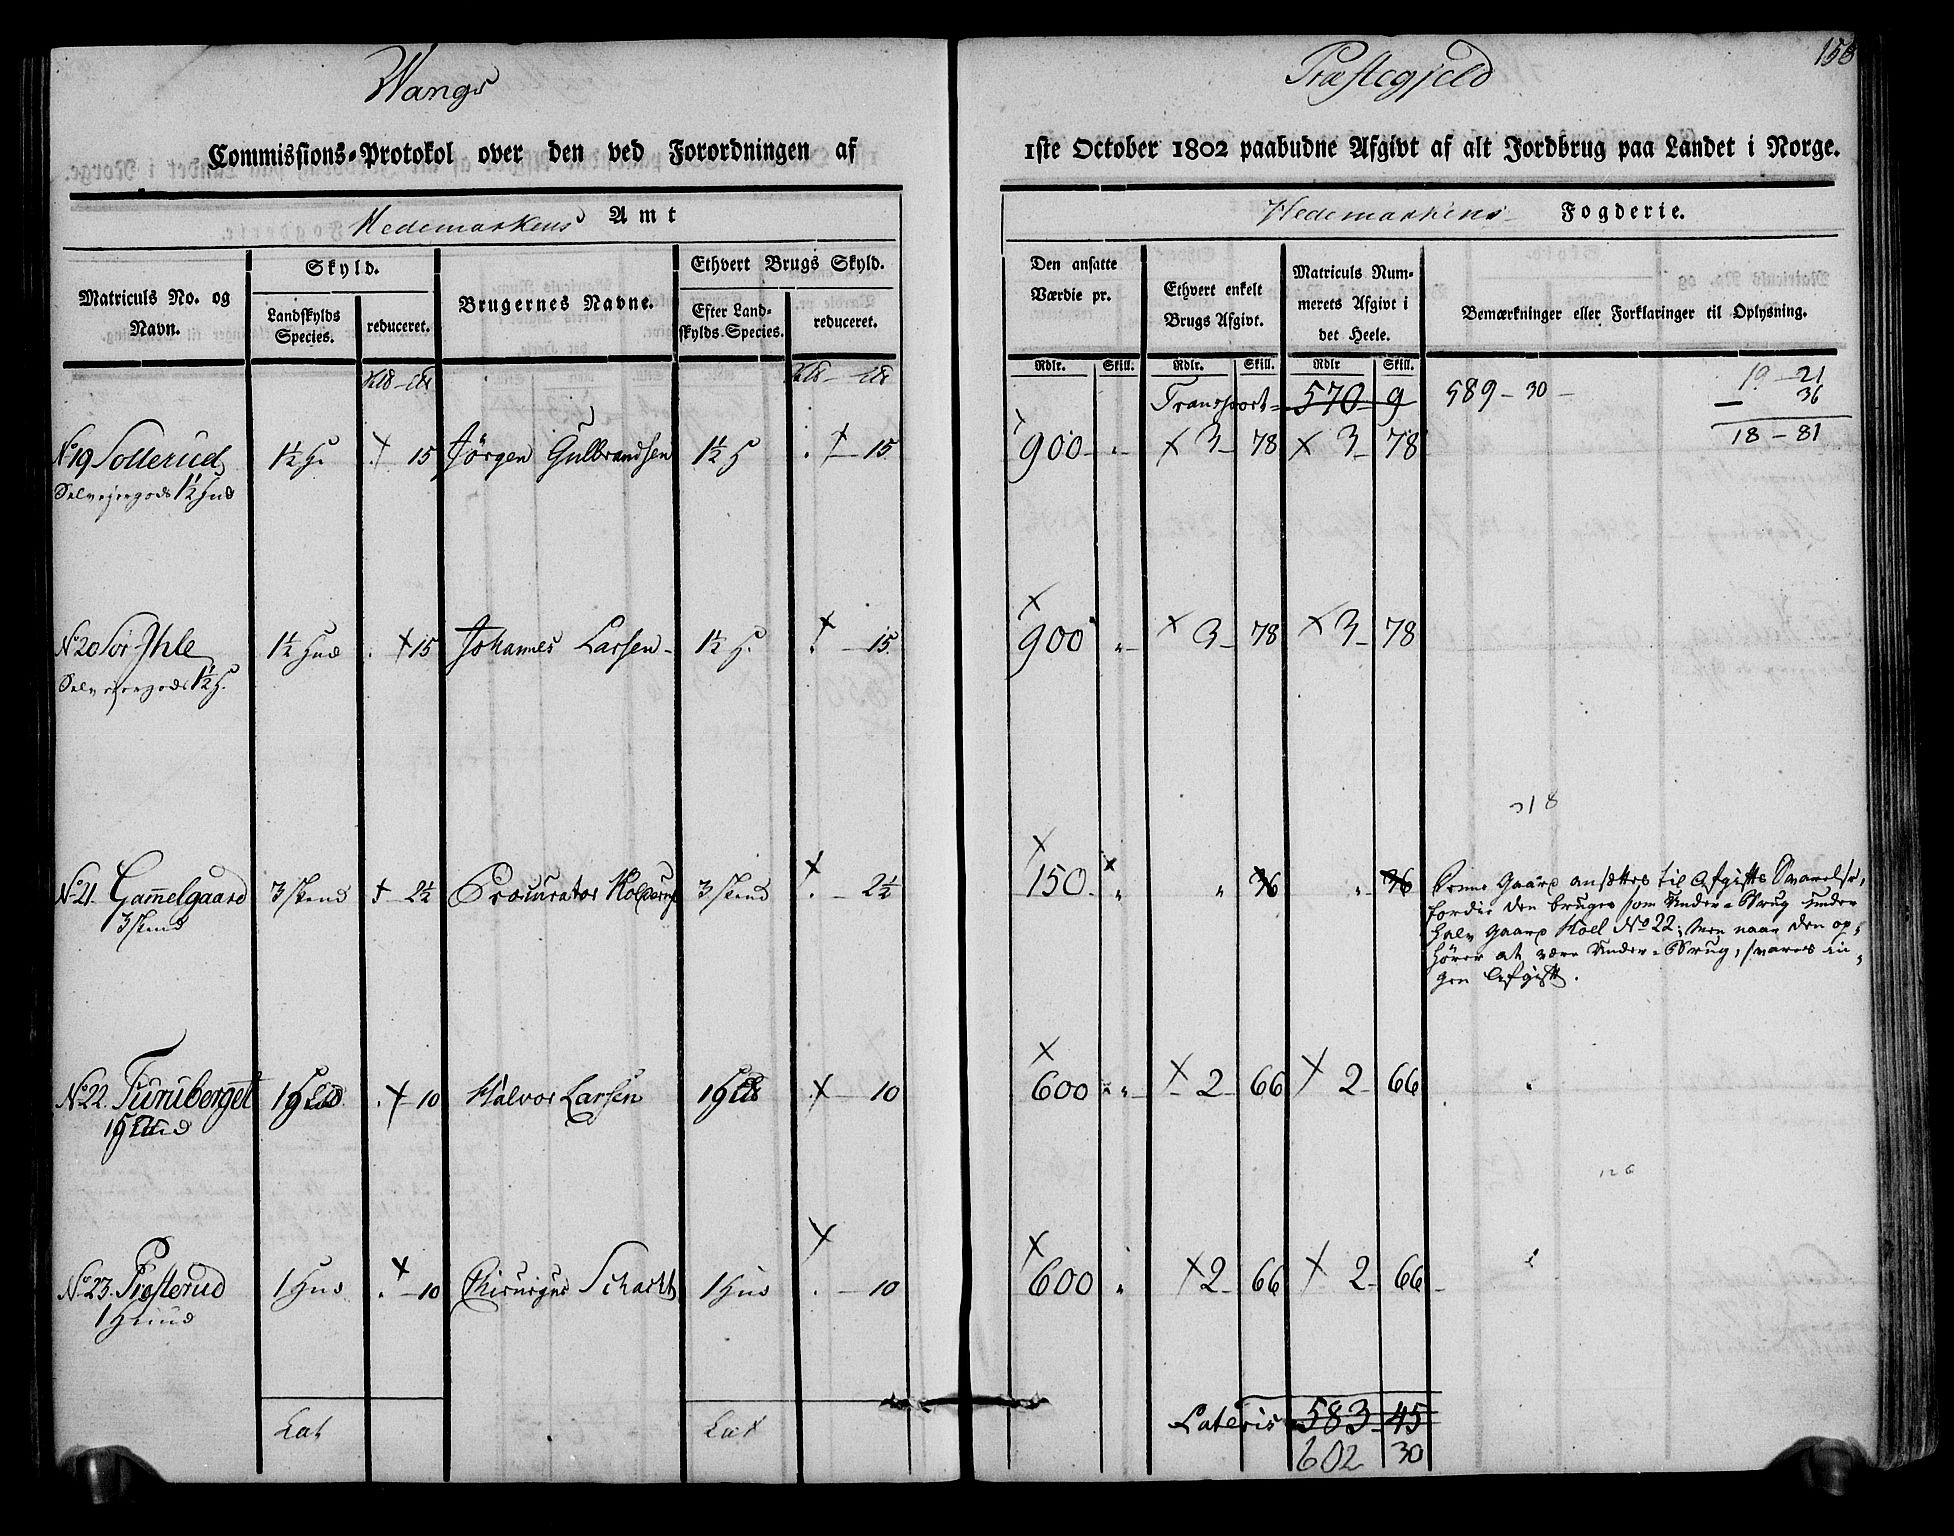 Wangs
Præstegjeld
158
Commissions-Protokol over den ved Forordningen af
1ste October 1802 paabudne Afgivt af alt Jordbrug paa Landet i Norge.
Hedemarkens Amt
Hedemarkens Fogderie.
Matriculs No. og Navn.
Skyld.
Landskylds Species.
reduceret.
Brugernes Navne.
Ethvert Brugs Skyld.
Efter Landskylds-Species.
reduceret.
Den ansatte Værdie pr.
Ethvert enkelt Brugs Afgivt.
Matriculs Nummerets Afgivt i det Heele.
Bemærkninger eller Forklaringer til Oplysning.
Rdlr. Skill. Rdlr. Skill. Rdlr Skill.
Transport 570 9 589 - 30 -
19 - 21
36
18 - 81
No 19 Sollerud 1½ H. . 15 Jörgen Gulbrandsen 1½ H . - 15 900 - „ - 3 - 78 3 - 78
Selvejergods 1½ Hud
No 20 Sör Ihle 1½ Hud . 15 Johannes Larsen 1½ H. . - 15 900 „ - 3 - 78 3 - 78
Selvejergods 1½ H.
318
No 21. Gam̄elgaard 3 skind - 2½ Procurator 3 skind . - 2½ 150 - „ „ 36 „ 36
3 skind
Denne Gaard ansættes til Afgifts Svarelse,
fordie den bruges som Under-Brug under
halv Gaard Hoel No 22; Men naar den op-
hører at være Under-Brug, svares in-
gen Afgift.
No 22. Furuberget 1 Hud . 10 Halvor Larsen 1 Hud . - 10 600 „ - 2 66 2 - 66
1 Hud
126
No 23. Præsterud 1 Hud . - 10 Chirurgus Schacht 1 Hud . - 10 600 „ 2 - 66 2 - 66
1 Huud
Lat
Lat
Lateris 583 - 45
602 30